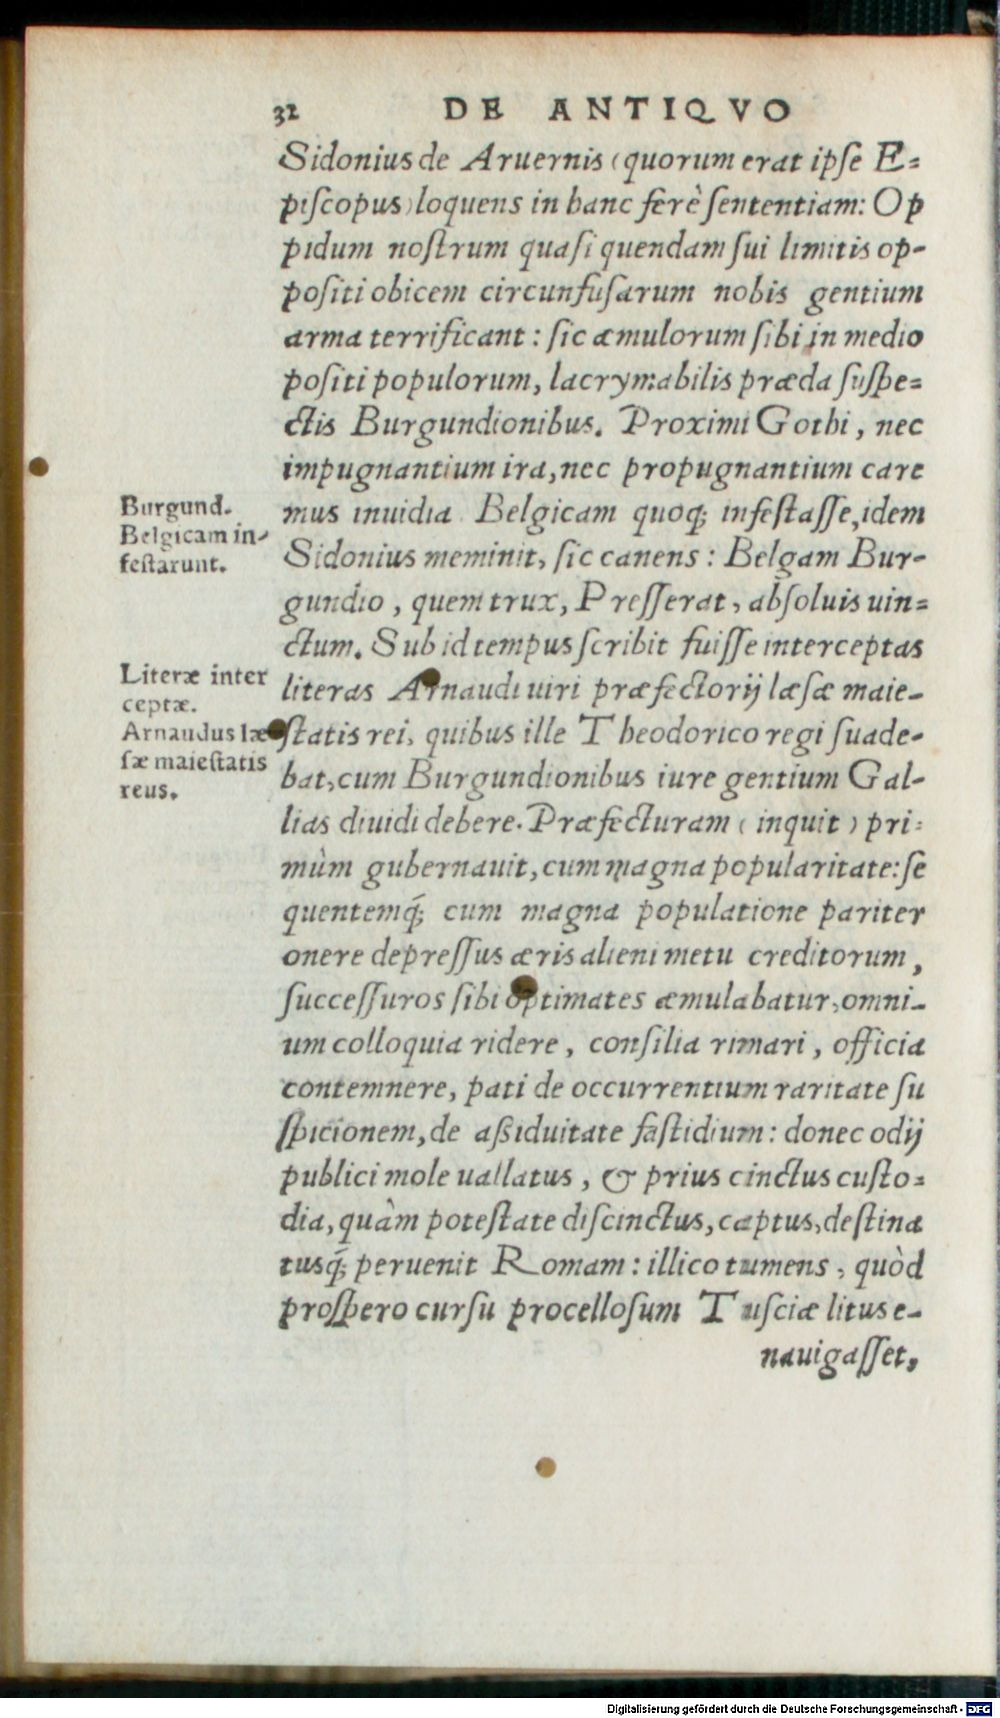 32 DE ANTIQVO
Sidonius de Aruernis (quorum erat ipse E=
piscopus) loquens in hanc ferè sententiam: Op
pidum nostrum quasi quendam sui limitis op-
positi obicem circunfusarum nobis gentium
arma terrificant: sic æmulorum sibi in medio
positi populorum, lacrymabilis præda suspe=
ctis Burgundionibus. Proximi Gothi, nec
impugnantium ira, nec propugnantium care
mus inuidia. Belgicam quoq; infestasse, idem
Sidonius meminit, sic canens: Belgam Bur-
gundio, quem trux, Presserat, absoluis uin=
ctum. Sub id tempus scribit fuisse interceptas
literas Arnaudi uiri præfectorij læsæ maie-
statis rei, quibus ille Theodorico regi suade-
bat, cum Burgundionibus iure gentium Gal-
lias diuidi debere. Præfecturam (inquit) pri=
mùm gubernauit, cum magna popularitate: se
quentemq́; cum magna populatione pariter
onere depressus æris alieni metu creditorum,
successuros sibi optimates æmulabatur, omni-
um colloquia ridere, consilia rimari, officia
contemnere, pati de occurrentium raritate su
spicionem, de aßiduitate fastidium: donec odij
publici mole uallatus, & prius cinctus custo=
dia, quàm potestate discinctus, captus, destina
tusq́; peruenit Romam: illico tumens, quòd
prospero cursu procellosum Tusciæ litus e-
nauigasset,
Burgund.
Belgicam in-
festarunt.
Literæ inter
ceptæ.
Arnaudus læ
sæ maiestatis
reus.
Digitalisierung gefördert durch die Deutsche Forschungsgemeinschaft - DFG